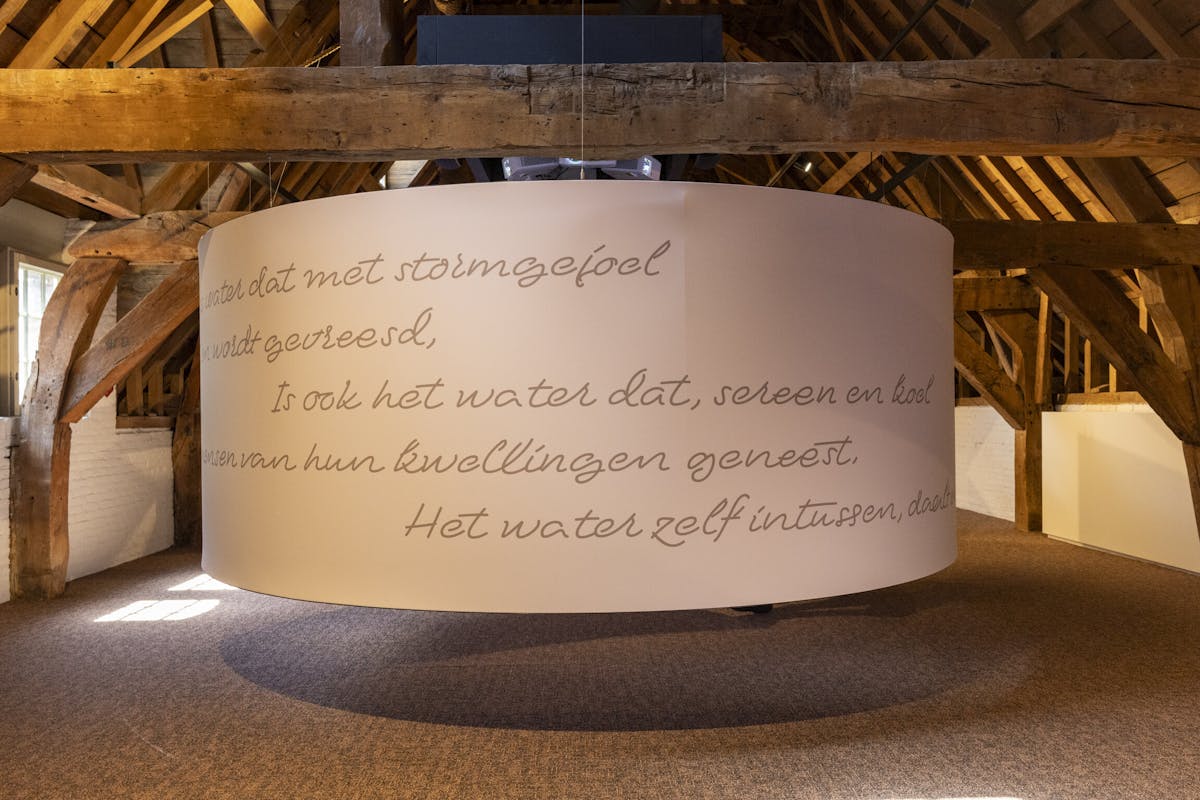 water dat met stormgejoel
wordt gevreesd,
Is ook het water dat, sereen en koel
van hun kwellingen geneest.
Het water zelf intussen,